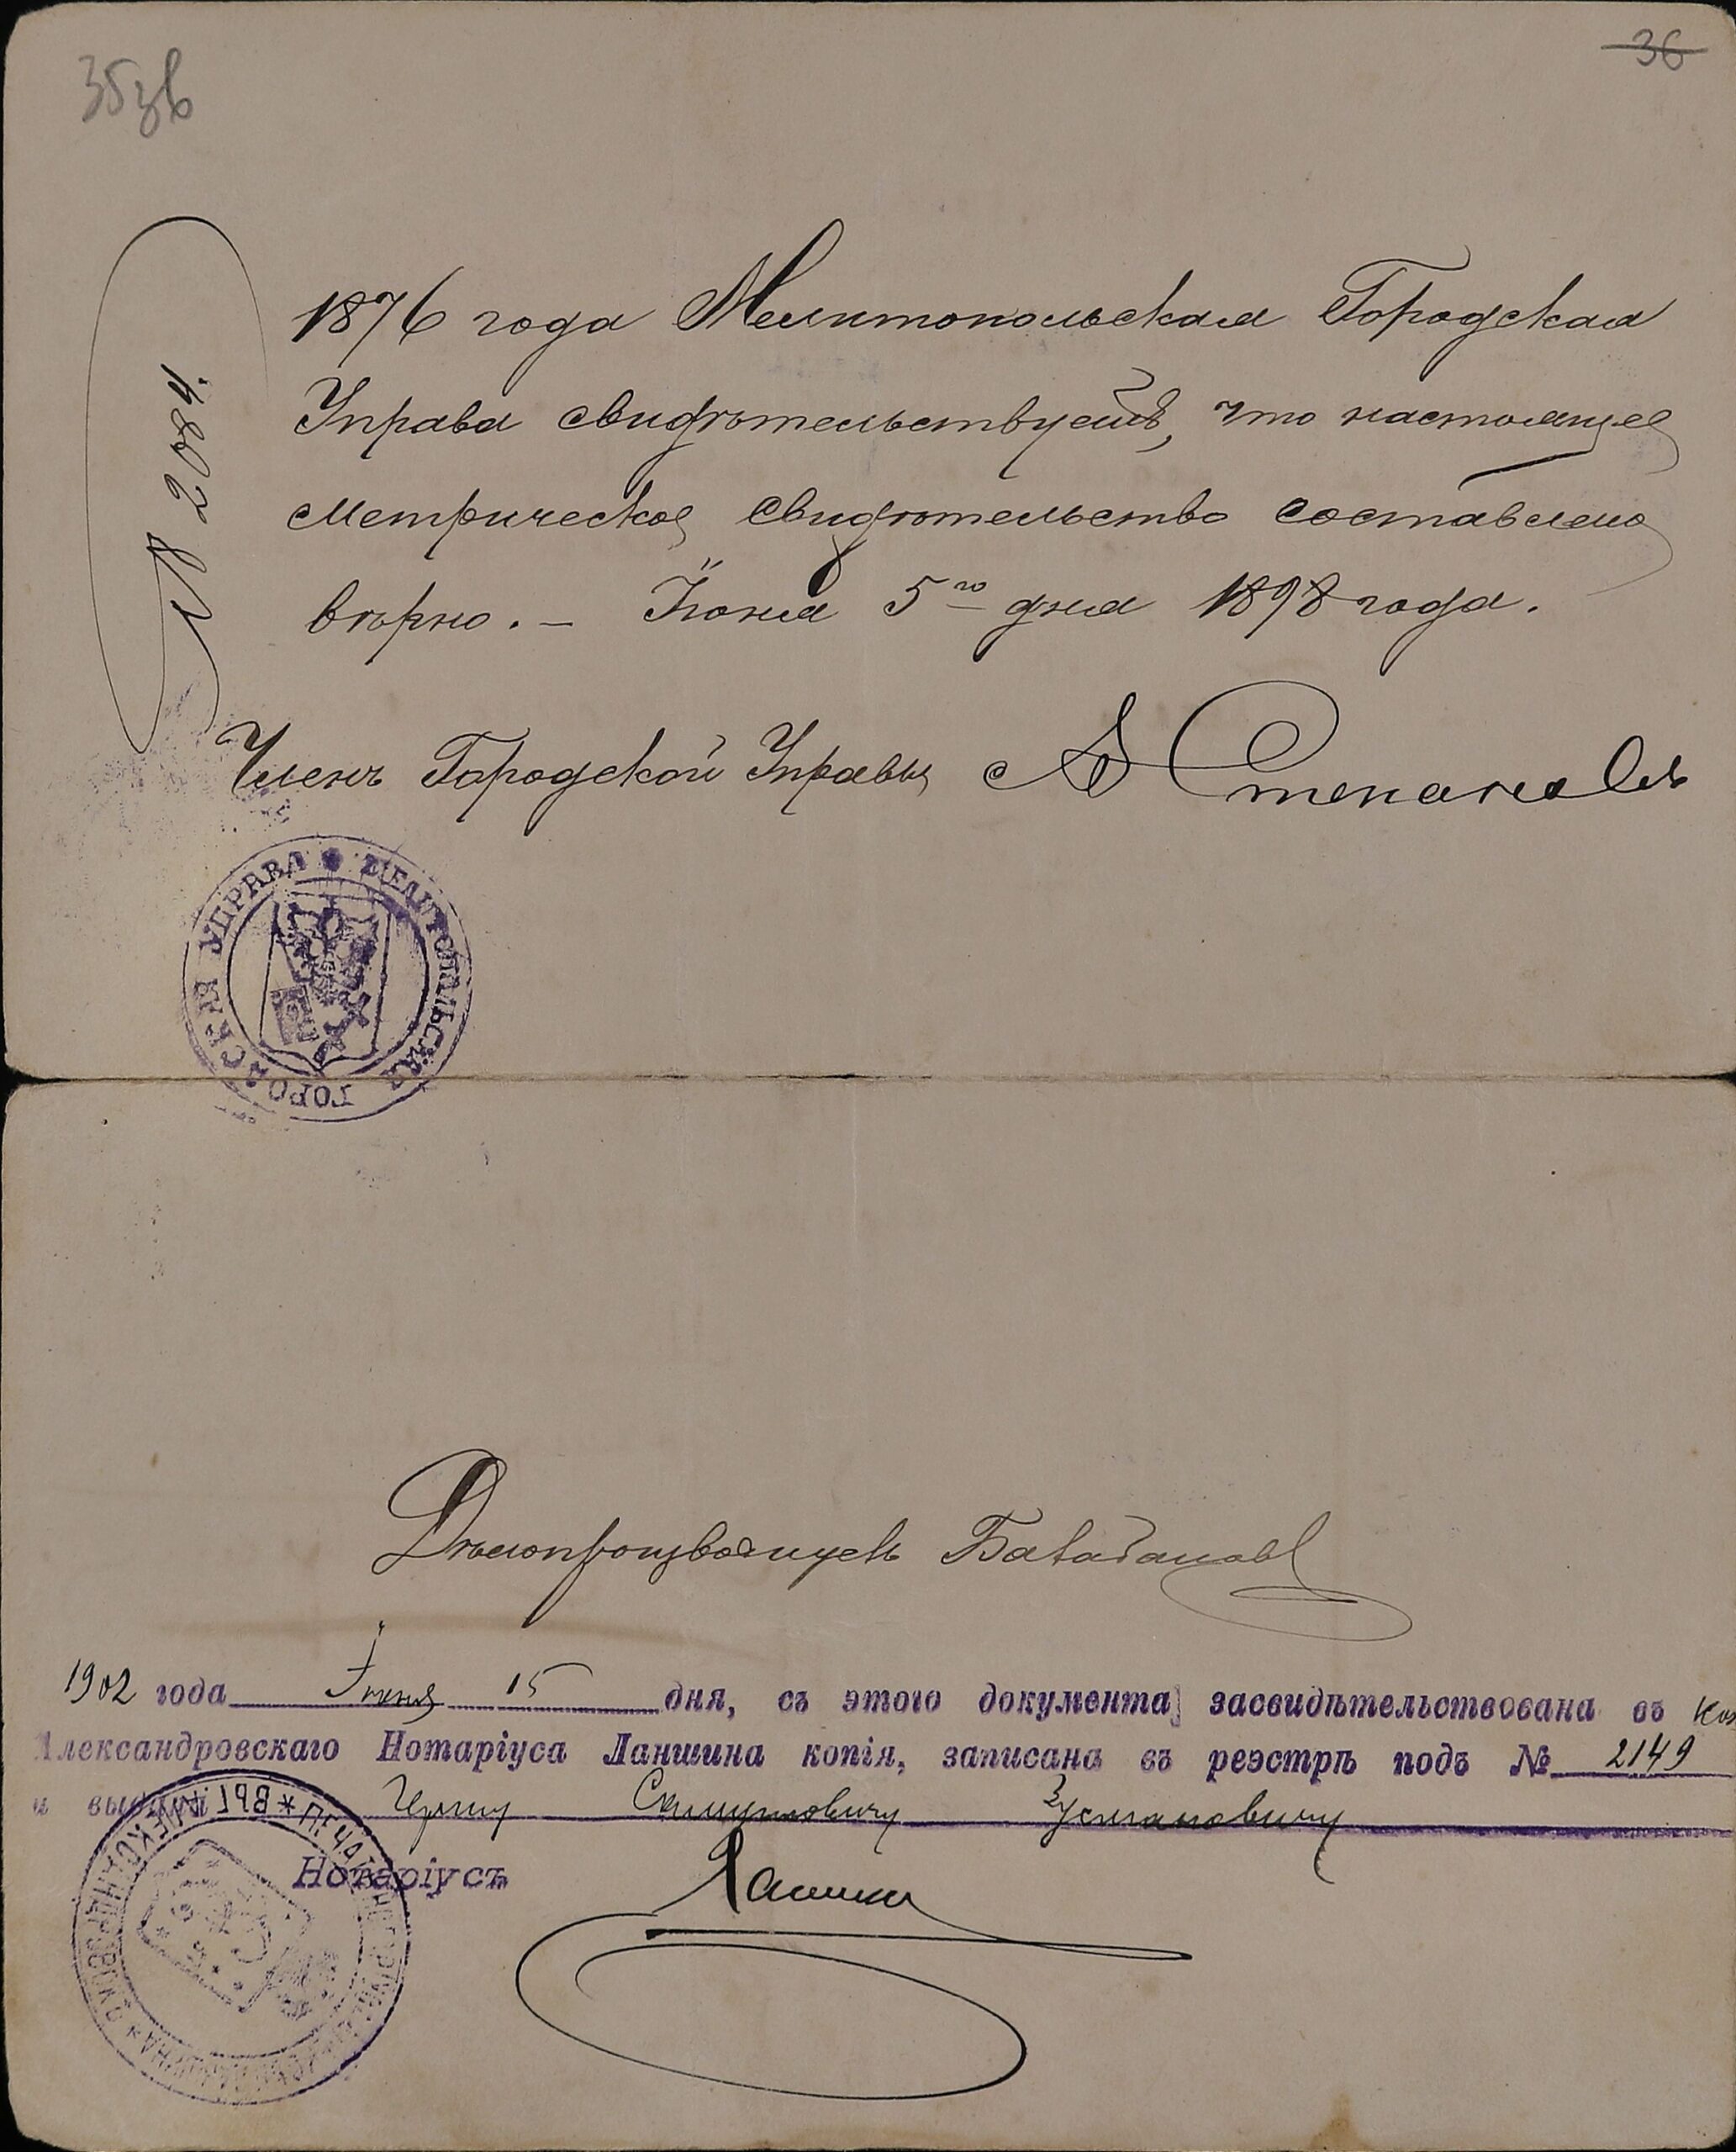 35зв
36
№ 2084.
1876 года Мелитопольская Городская
Управа свидѣтельствуетъ, что настоящее
метрическое свидѣтельство составлено
вѣрно. – Іюня 5го дня 1898 года.
Членъ Городской Управы А Степановъ
МЕЛИТОПОЛЬСКАЯ ГОРОДСКАЯ УПРАВА
Дѣлопроизводитель
1902 года Іюня 15 дня, съ этого документа засвидѣтельствована въ
Александровскаго Нотаріуса Ланшина копія, записана въ реэстрѣ подъ № 2149
и выдана Самуиловичу Зусмановичу
Нотаріусъ Ланшин